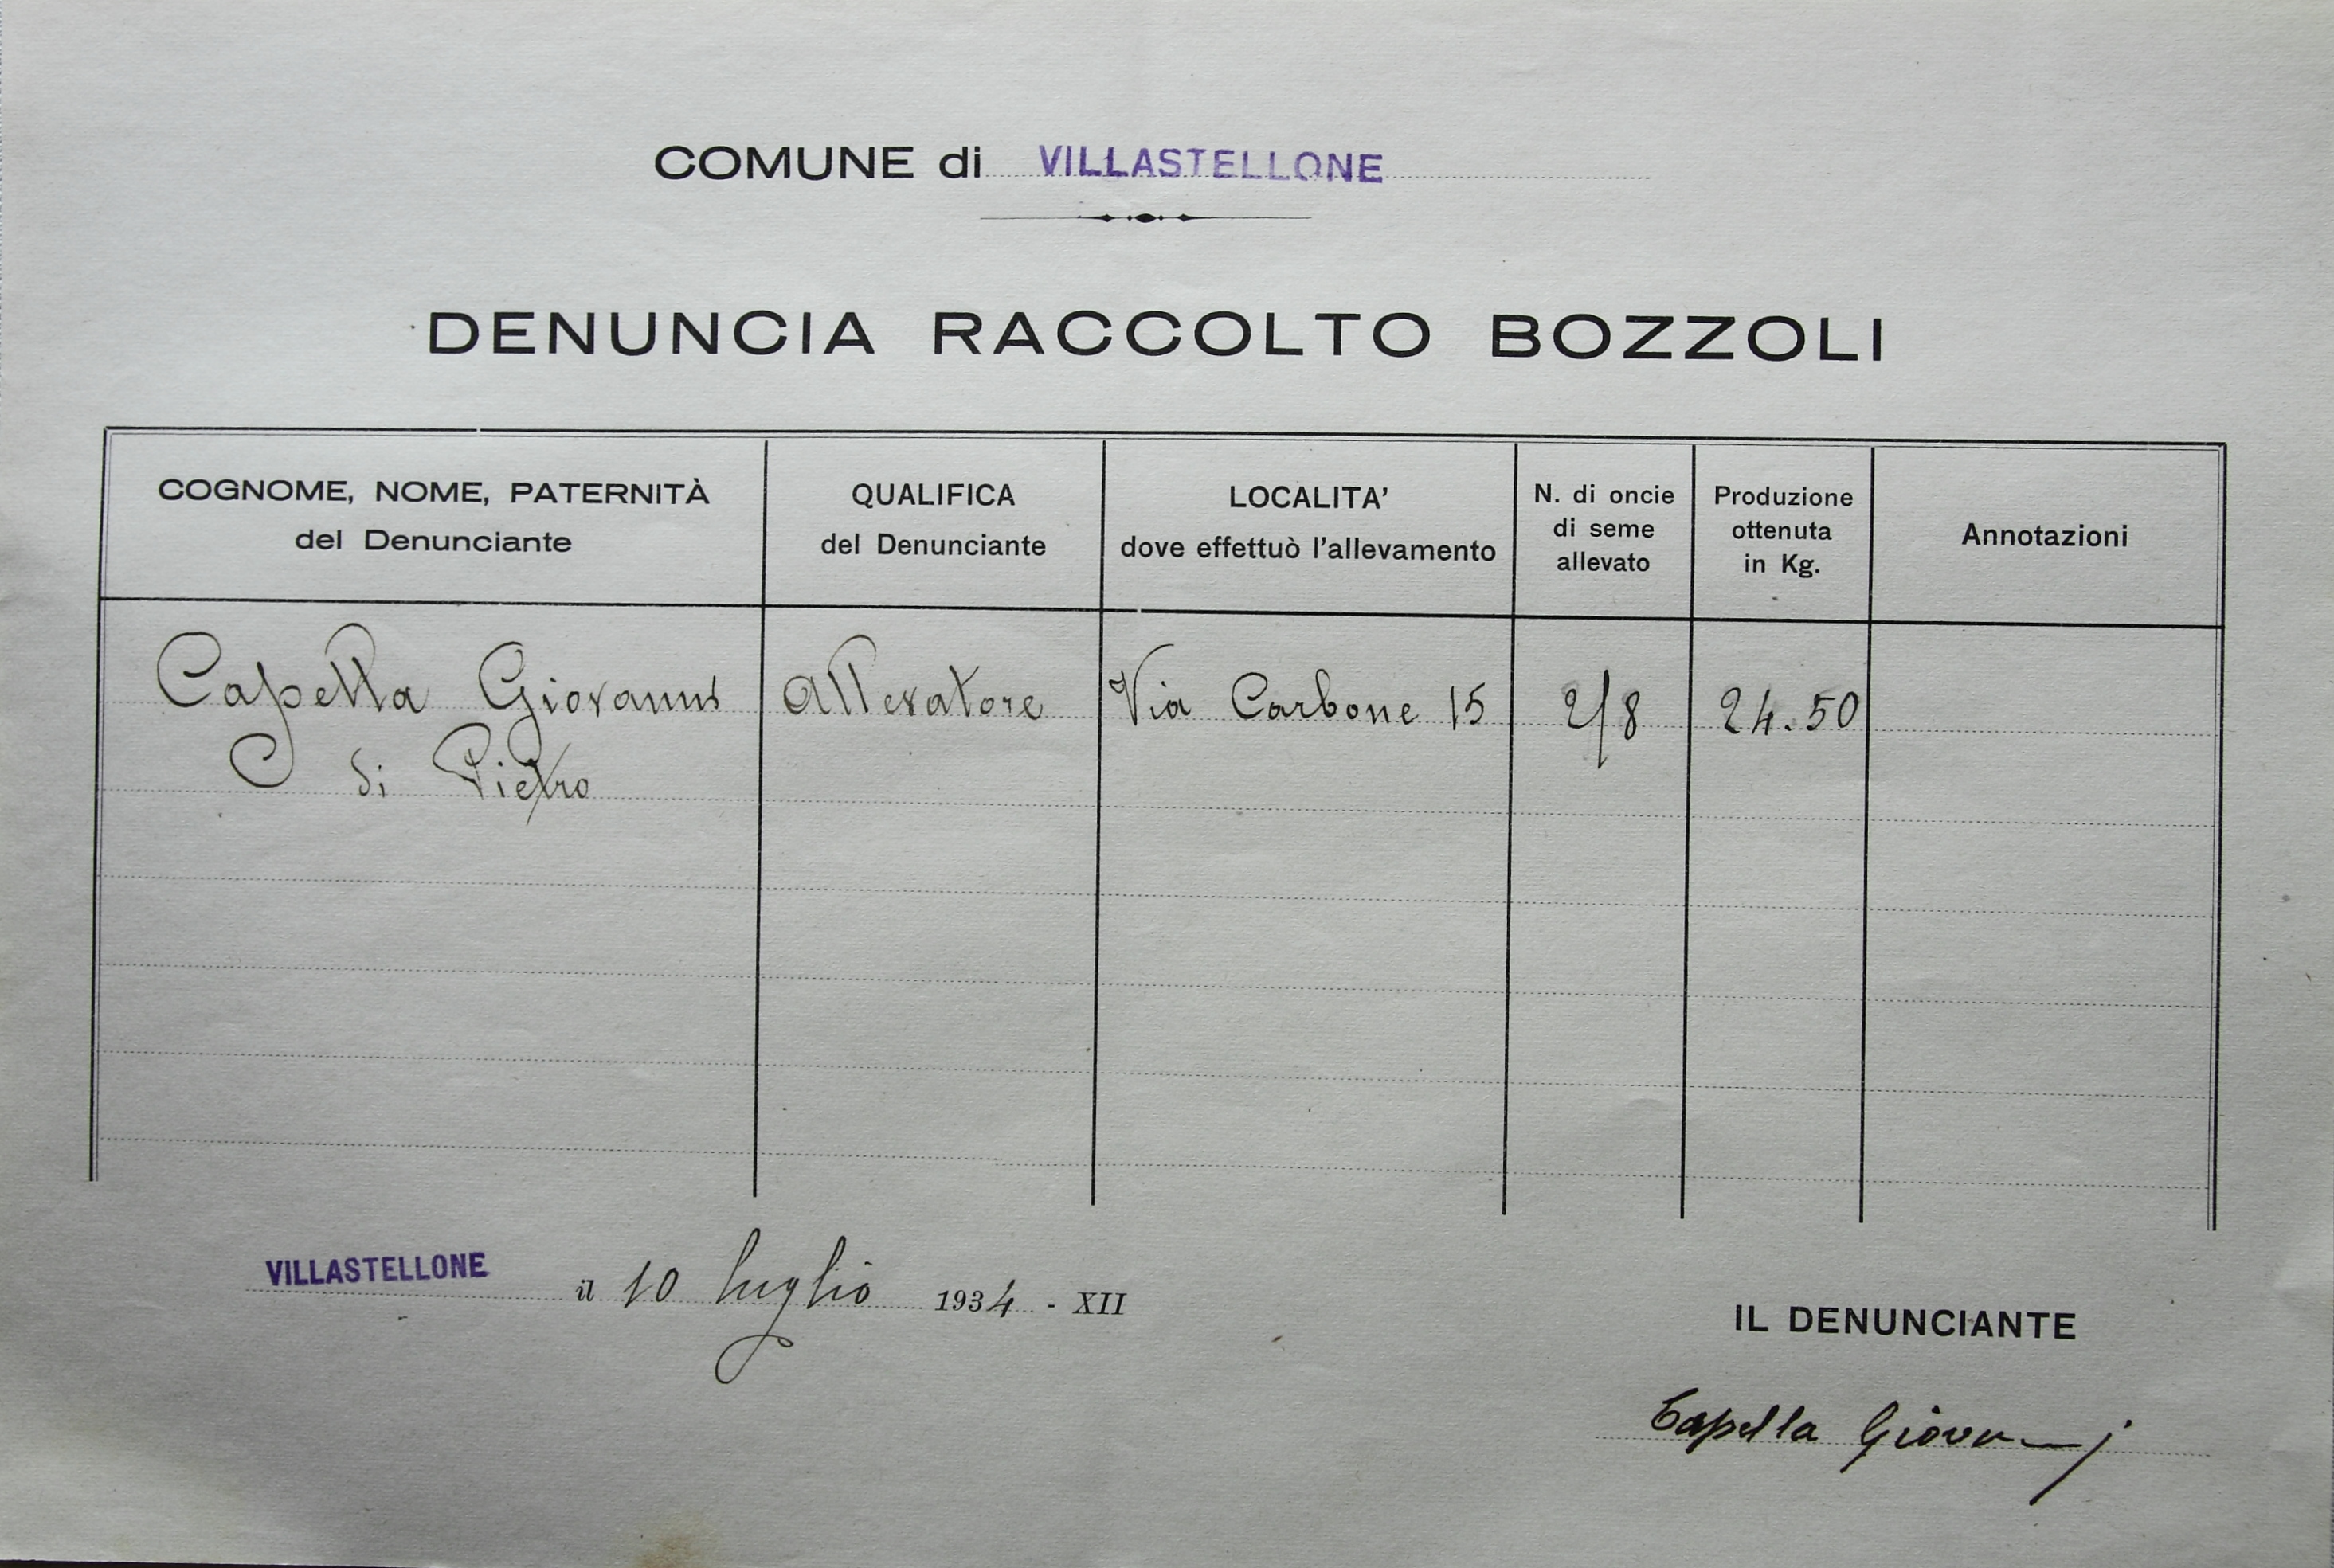 COMUNE di VILLASTELLONE
DENUNCIA RACCOLTO BOZZOLI
COGNOME, NOME, PATERNITÀ
del Denunciante
QUALIFICA
del Denunciante
LOCALITA'
dove effettuò l'allevamento
N. di oncie
di seme
allevato
Produzione
ottenuta
in Kg.
Annotazioni
Capella Giovanni
di Pietro
Allevatore
Via Carbone 15
2/8
24.50
VILLASTELLONE il 10 luglio 1934 - XII
IL DENUNCIANTE
Capella Giovanni